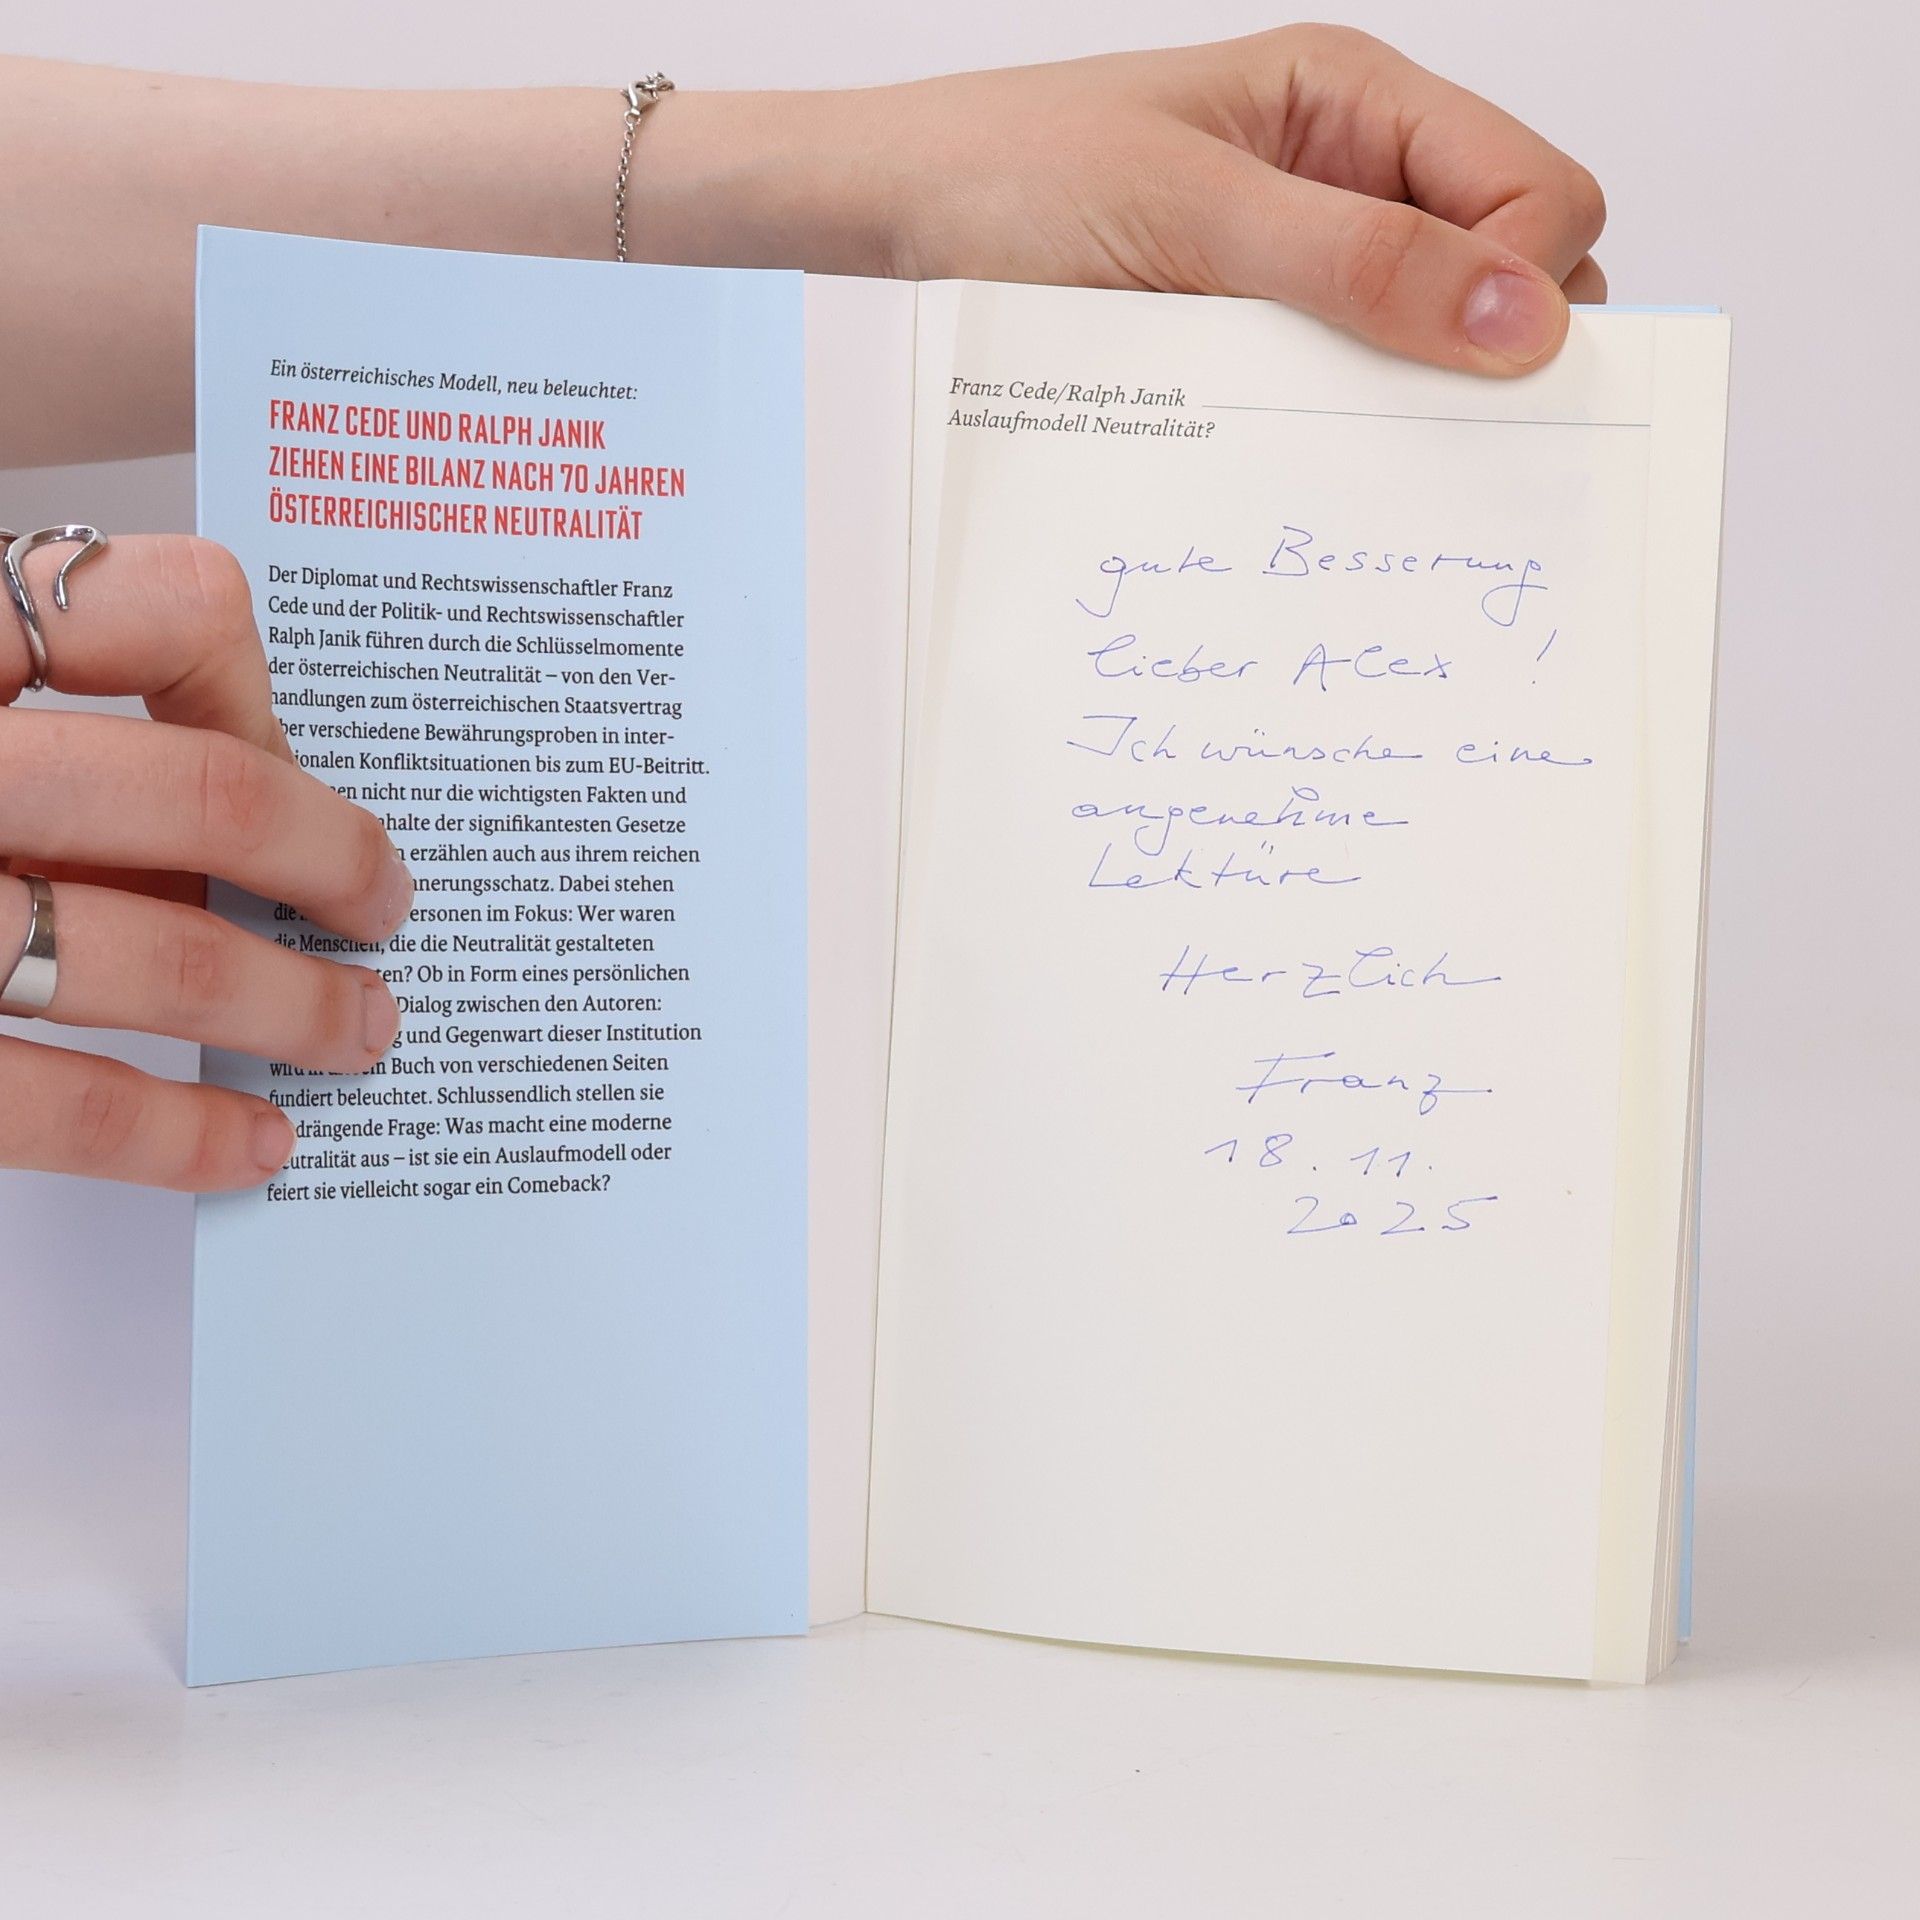 Ein österreichisches Modell, neu beleuchtet:
FRANZ CEDE UND RALPH JANIK
ZIEHEN EINE BILANZ NACH 70 JAHREN
ÖSTERREICHISCHER NEUTRALITÄT
Der Diplomat und Rechtswissenschaftler Franz
Cede und der Politik- und Rechtswissenschaftler
Ralph Janik führen durch die Schlüsselmomente
der österreichischen Neutralität – von den Ver-
handlungen zum österreichischen Staatsvertrag
verschiedene Bewährungsproben in inter-
Konfliktsituationen bis zum EU-Beitritt.
nicht nur die wichtigsten Fakten und
der signifikantesten Gesetze
erzählen auch aus ihrem reichen
Dabei stehen
die im Fokus: Wer waren
die Menschen, die die Neutralität gestalteten
Ob in Form eines persönlichen
Dialog zwischen den Autoren:
und Gegenwart dieser Institution
wird in Buch von verschiedenen Seiten
fundiert beleuchtet. Schlussendlich stellen sie
drängende Frage: Was macht eine moderne
Neutralität aus – ist sie ein Auslaufmodell oder
feiert sie vielleicht sogar ein Comeback?
Franz Cede/Ralph Janik
Auslaufmodell Neutralität?
gute Besserung
lieber Alex !
Ich wünsche eine
angenehme
Lektüre
Herzlich
Franz
18. 11.
2025